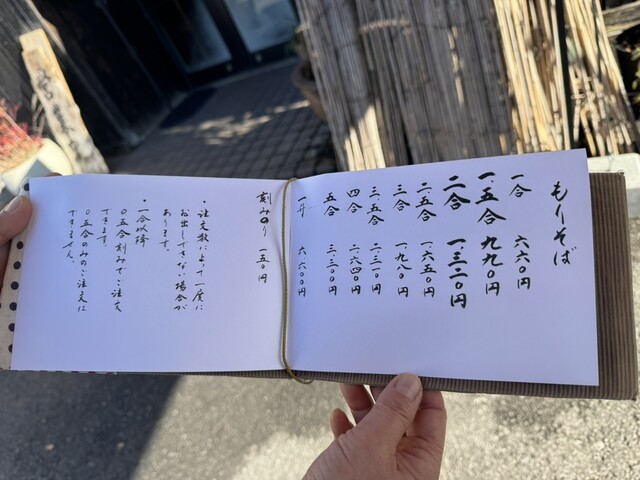 もりそば
一合 六六〇円
一.五合 九九〇円
二合 一.三二〇円
二.五合 一.六五〇円
三合 一.九八〇円
三.五合 二.三一〇円
四合 二.六四〇円
五合 三.三〇〇円
一升 六.六〇〇円
刻みのり 一五〇円
・注文数によって一度に
お出しできない場合が
あります。
・一合以降
〇.五合刻みでご注文
できます。
〇.五合のみのご注文は
できません。